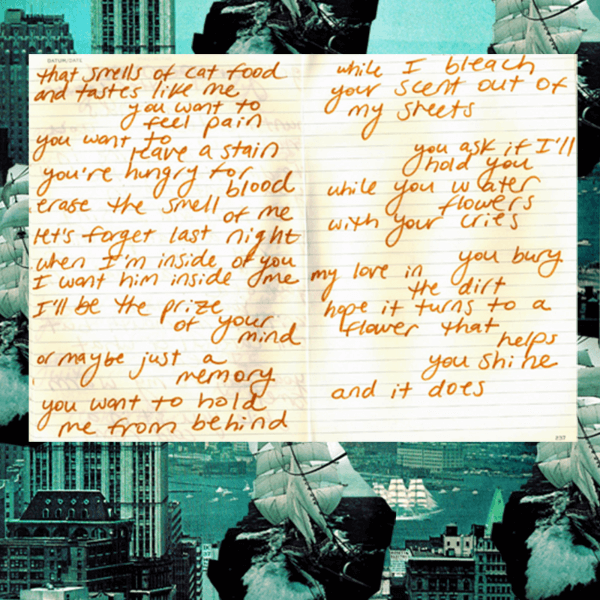 that smells of cat food
and tastes like me
you want to
feel pain
you want to
leave a stain
you're hungry for
blood
erase the smell
of me
let's forget last night
when I'm inside of you
I want him inside of me
I'll be the prize
of your
mind
or maybe just a
memory
you want to hold
me from behind
while I bleach
your scent out of
my sheets
you ask if I'll
hold you
while you water
flowers
with your cries
you bury
my love in
the dirt
hope it turns to a
flower that
helps
you shine
and it does